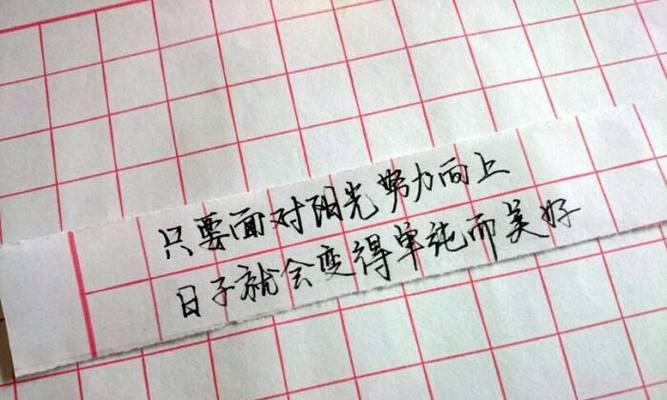 只要面对阳光努力向上
日子就会变得单纯而美好